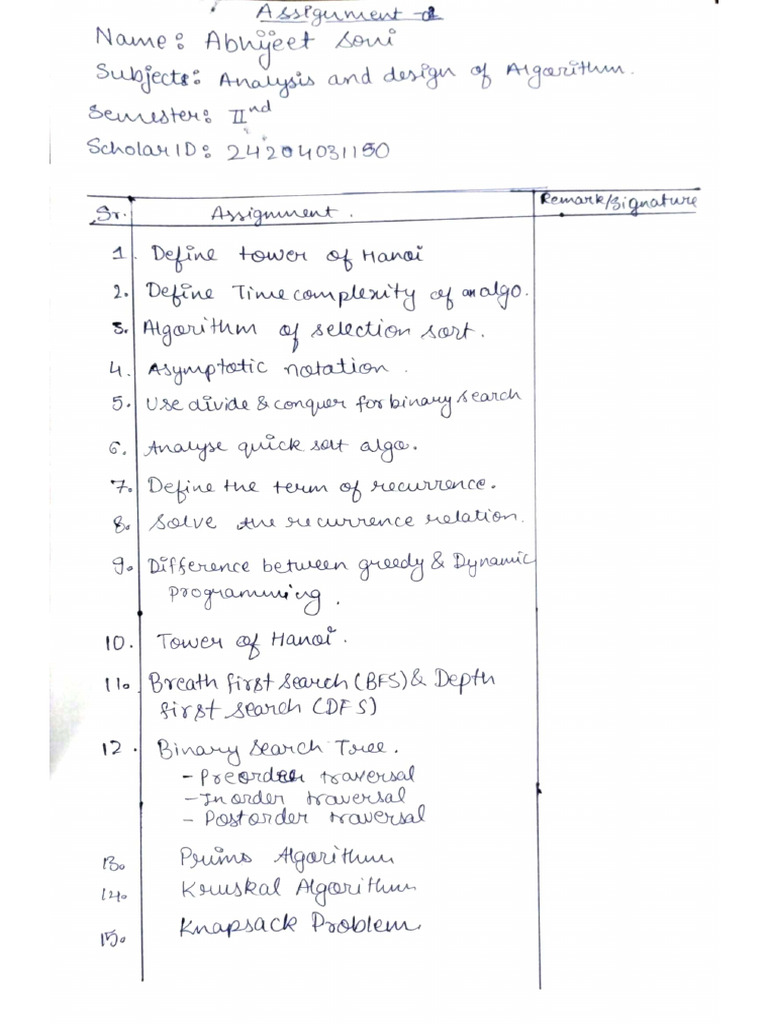 Assignment
Name: Abhijeet Soni
Subject: Analysis and design of Algorithm.
Semester: IInd
Scholar ID: 24204031150
Sr. Assignment. Remark/Signature
1. Define tower of Hanoi
2. Define Time complexity of an algo.
3. Algorithm of selection sort.
4. Asymptotic notation.
5. Use divide & conquer for binary search
6. Analyse quick sort algo.
7. Define the term of recurrence.
8. Solve the recurrence relation.
9. Difference between greedy & Dynamic
programming.
10. Tower of Hanoi.
11. Breath first search (BFS) & Depth
first search (DFS)
12. Binary Search Tree.
- Preorder traversal
- In order traversal
- Postorder traversal
13. Prims Algorithm
14. Kruskal Algorithm
15. Knapsack Problem.